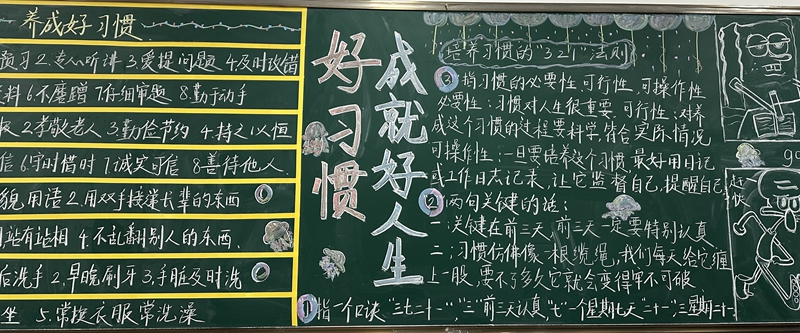 养成好习惯
预习 2.专心听讲 3.爱提问题 4.及时改错
6.不磨蹭 7.仔细审题 8.勤于动手
2.孝敬老人 3.勤俭节约 4.持之以恒
信 6.守时惜时 7.诚实可信 8.善待他人
貌用语 2.用双手接递长辈的东西
站有站相 4.不乱翻别人的东西
后洗手 2.早晚刷牙 3.手脏及时洗
坐 5.常换衣服常洗澡
好习惯
成就好人生
培养习惯的“321”法则
3 指习惯的必要性,可行性,可操作性
必要性:习惯对人生很重要,可行性:对养
成这个习惯的过程要科学,符合实际情况
可操作性:一旦要培养这个习惯,最好用日记
或工作日志记录,让它监督自己,提醒自己
2 两句关键的话:
一:关键在前三天,前三天一定要特别认真
二:习惯仿佛像一根缆绳,我们每天给它缠
上一股,要不了多久它就会变得牢不可破
1 指一个口诀“三七二十一”,“三”前三天认真“七”一个星期七天“二十一”,三星期二十